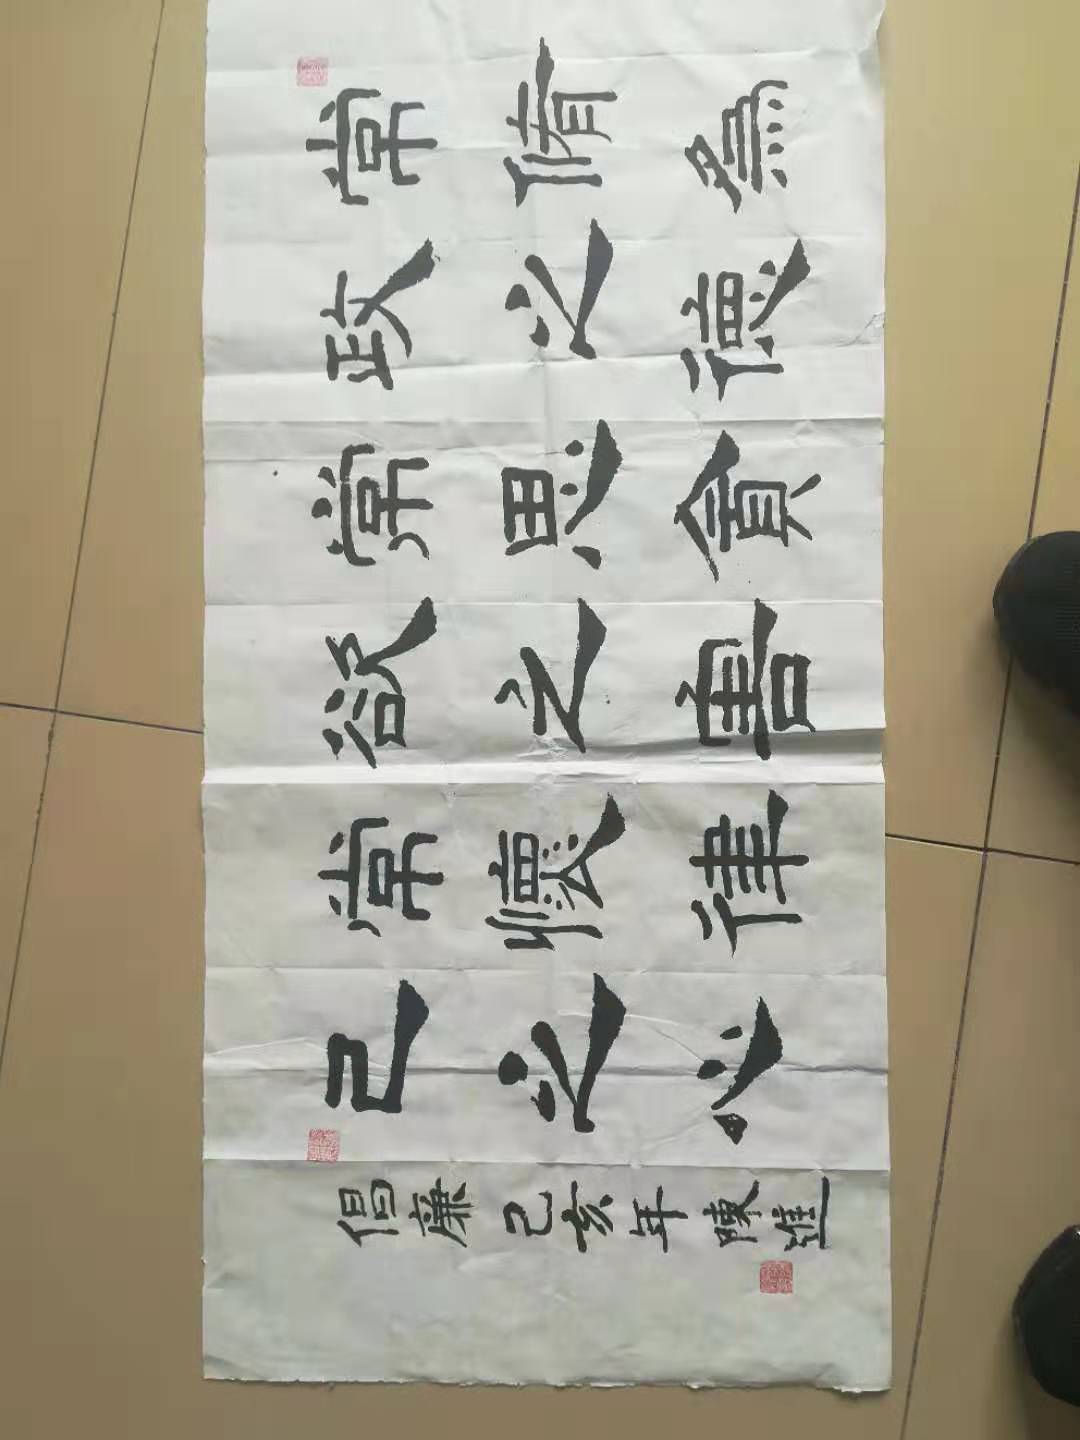 常脩為
政之德
常思貪
欲之害
常懷律
己之心
倡廉 己亥年 陳進